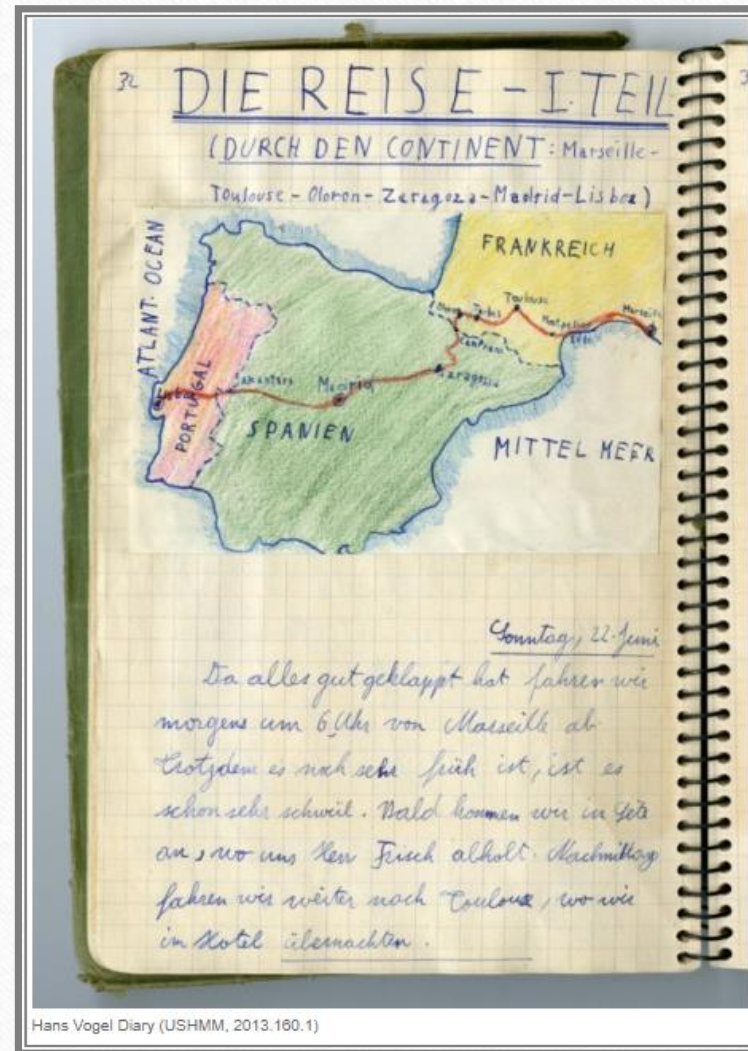 32
DIE REISE - I. TEIL
(DURCH DEN CONTINENT: Marseille-
Toulouse - Oloron - Zaragoza - Madrid - Lisboa)
ATLANT. OCEAN
FRANKREICH
Toulouse
Marseille
Zaragoza
Madrid
PORTUGAL
SPANIEN
MITTEL MEER
Sonntag, 22. Juni
Da alles gut geklappt hat fahren wir
morgens um 6 Uhr von Marseille ab.
Trotzdem es noch sehr früh ist, ist es
schon sehr schwül. Bald kommen wir in Sète
an, wo uns Herr Frisch abholt. Nachmittag
fahren wir weiter nach Toulouse, wo wir
im Hotel übernachten.
Hans Vogel Diary (USHMM, 2013.160.1)